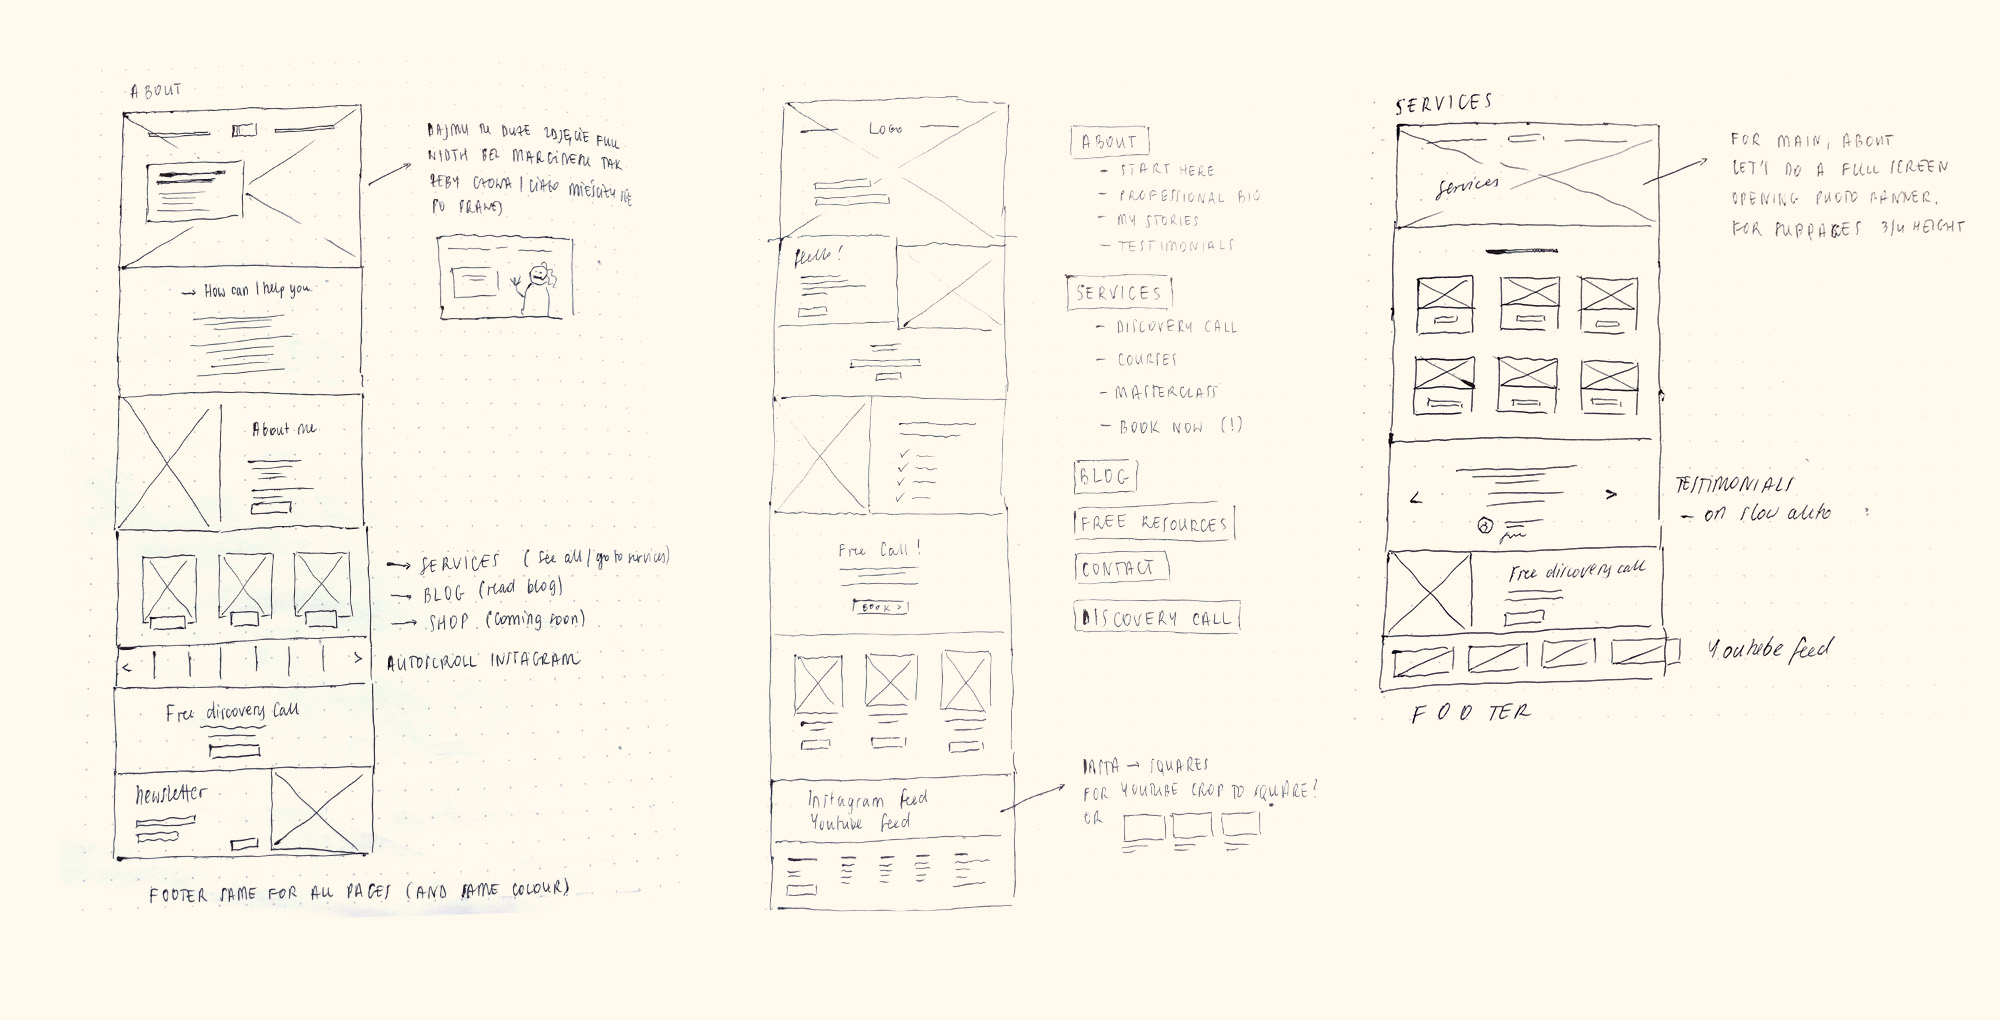 ABOUT
DAJMY TU DUŻE ZDJĘCIE FULL
WIDTH BEZ MARGINESU TAK
ŻEBY GŁOWA / CIAŁO MIEŚCIŁY SIĘ
PO PRAWEJ
→ How can I help you
About me
→ SERVICES (see all / go to services)
→ BLOG (read blog)
→ SHOP (coming soon)
< >
AUTOSCROLL INSTAGRAM
Free discovery call
newsletter
FOOTER SAME FOR ALL PAGES (AND SAME COLOUR)
LOGO
Hello!
Free Call!
BOOK >
Instagram feed
Youtube feed
ABOUT
- START HERE
- PROFESSIONAL BIO
- MY STORIES
- TESTIMONIALS
SERVICES
- DISCOVERY CALL
- COURSES
- MASTERCLASS
- BOOK NOW (!)
BLOG
FREE RESOURCES
CONTACT
DISCOVERY CALL
INSTA → SQUARES
FOR YOUTUBE CROP TO SQUARE?
OR
SERVICES
Services
FOR MAIN, ABOUT
LET'S DO A FULL SCREEN
OPENING PHOTO BANNER.
FOR SUBPAGES 3/4 HEIGHT
< >
TESTIMONIALS
- on slow auto
Free discovery call
Youtube feed
FOOTER